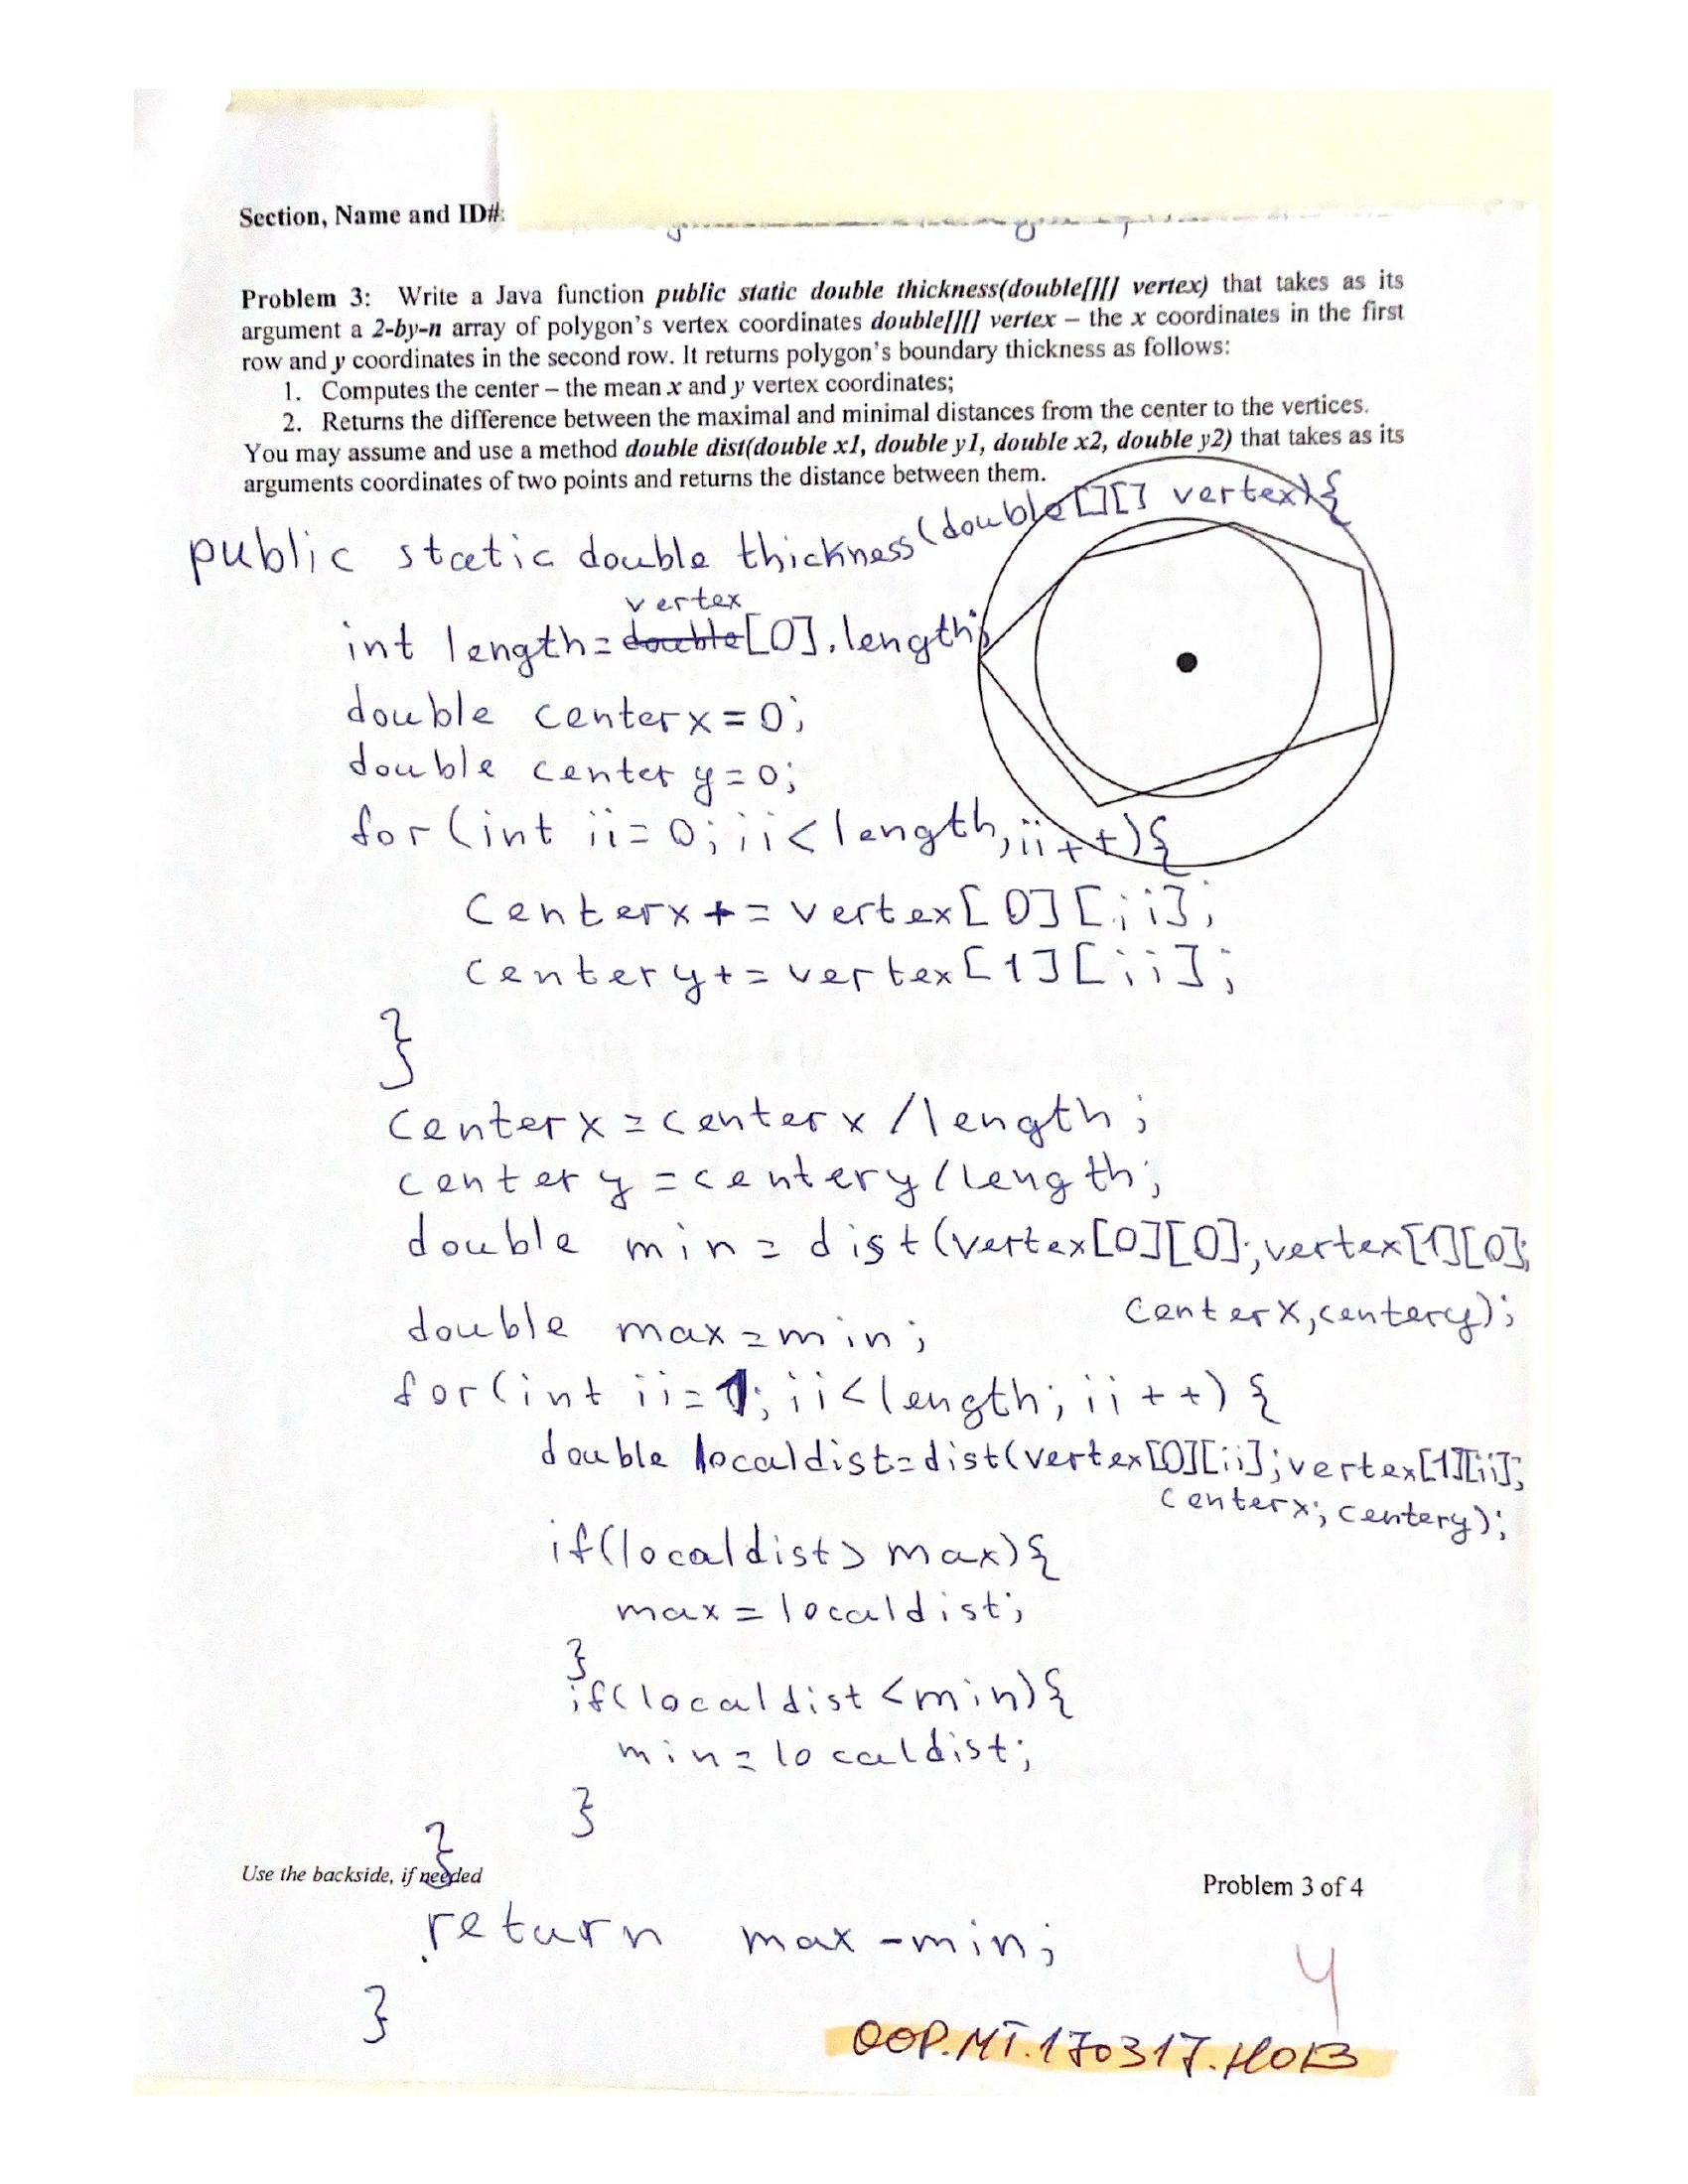 Section, Name and ID#:
Problem 3: Write a Java function public static double thickness(double[][] vertex) that takes as its
argument a 2-by-n array of polygon's vertex coordinates double[][] vertex – the x coordinates in the first
row and y coordinates in the second row. It returns polygon's boundary thickness as follows:
1. Computes the center – the mean x and y vertex coordinates;
2. Returns the difference between the maximal and minimal distances from the center to the vertices.
You may assume and use a method double dist(double x1, double y1, double x2, double y2) that takes as its
arguments coordinates of two points and returns the distance between them.
public static double thickness(double[][] vertex){
vertex
int length=double[0].length;
double centerx=0;
double centery=0;
for(int ii=0;ii<length,ii++){
centerx+=vertex[0][ii];
centery+=vertex[1][ii];
}
centerx=centerx/length;
centery=centery/length;
double min=dist(vertex[0][0];vertex[1][0];
centerx,centery);
double max=min;
for(int ii=1;ii<length;ii++){
double localdist=dist(vertex[0][ii];vertex[1][ii];
centerx;centery);
if(localdist>max){
max=localdist;
}
if(localdist<min){
min=localdist;
}
}
Use the backside, if needed
Problem 3 of 4
return max-min;
4
}
OOP.MT.170317.H01B